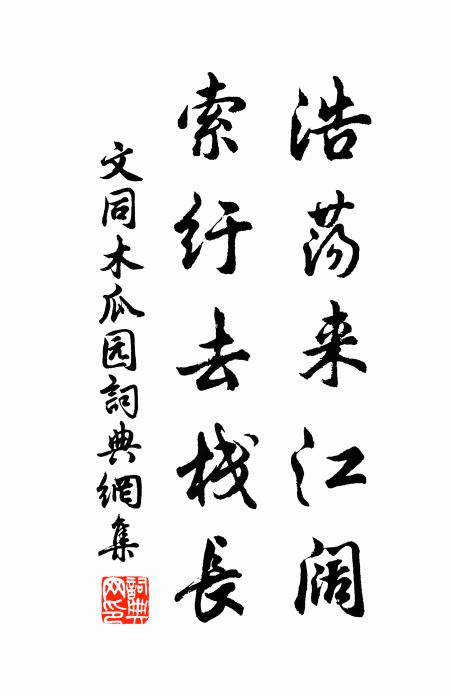 浩荡来江阔
索纡去栈長
文同木瓜园詞典網集
詞典网印